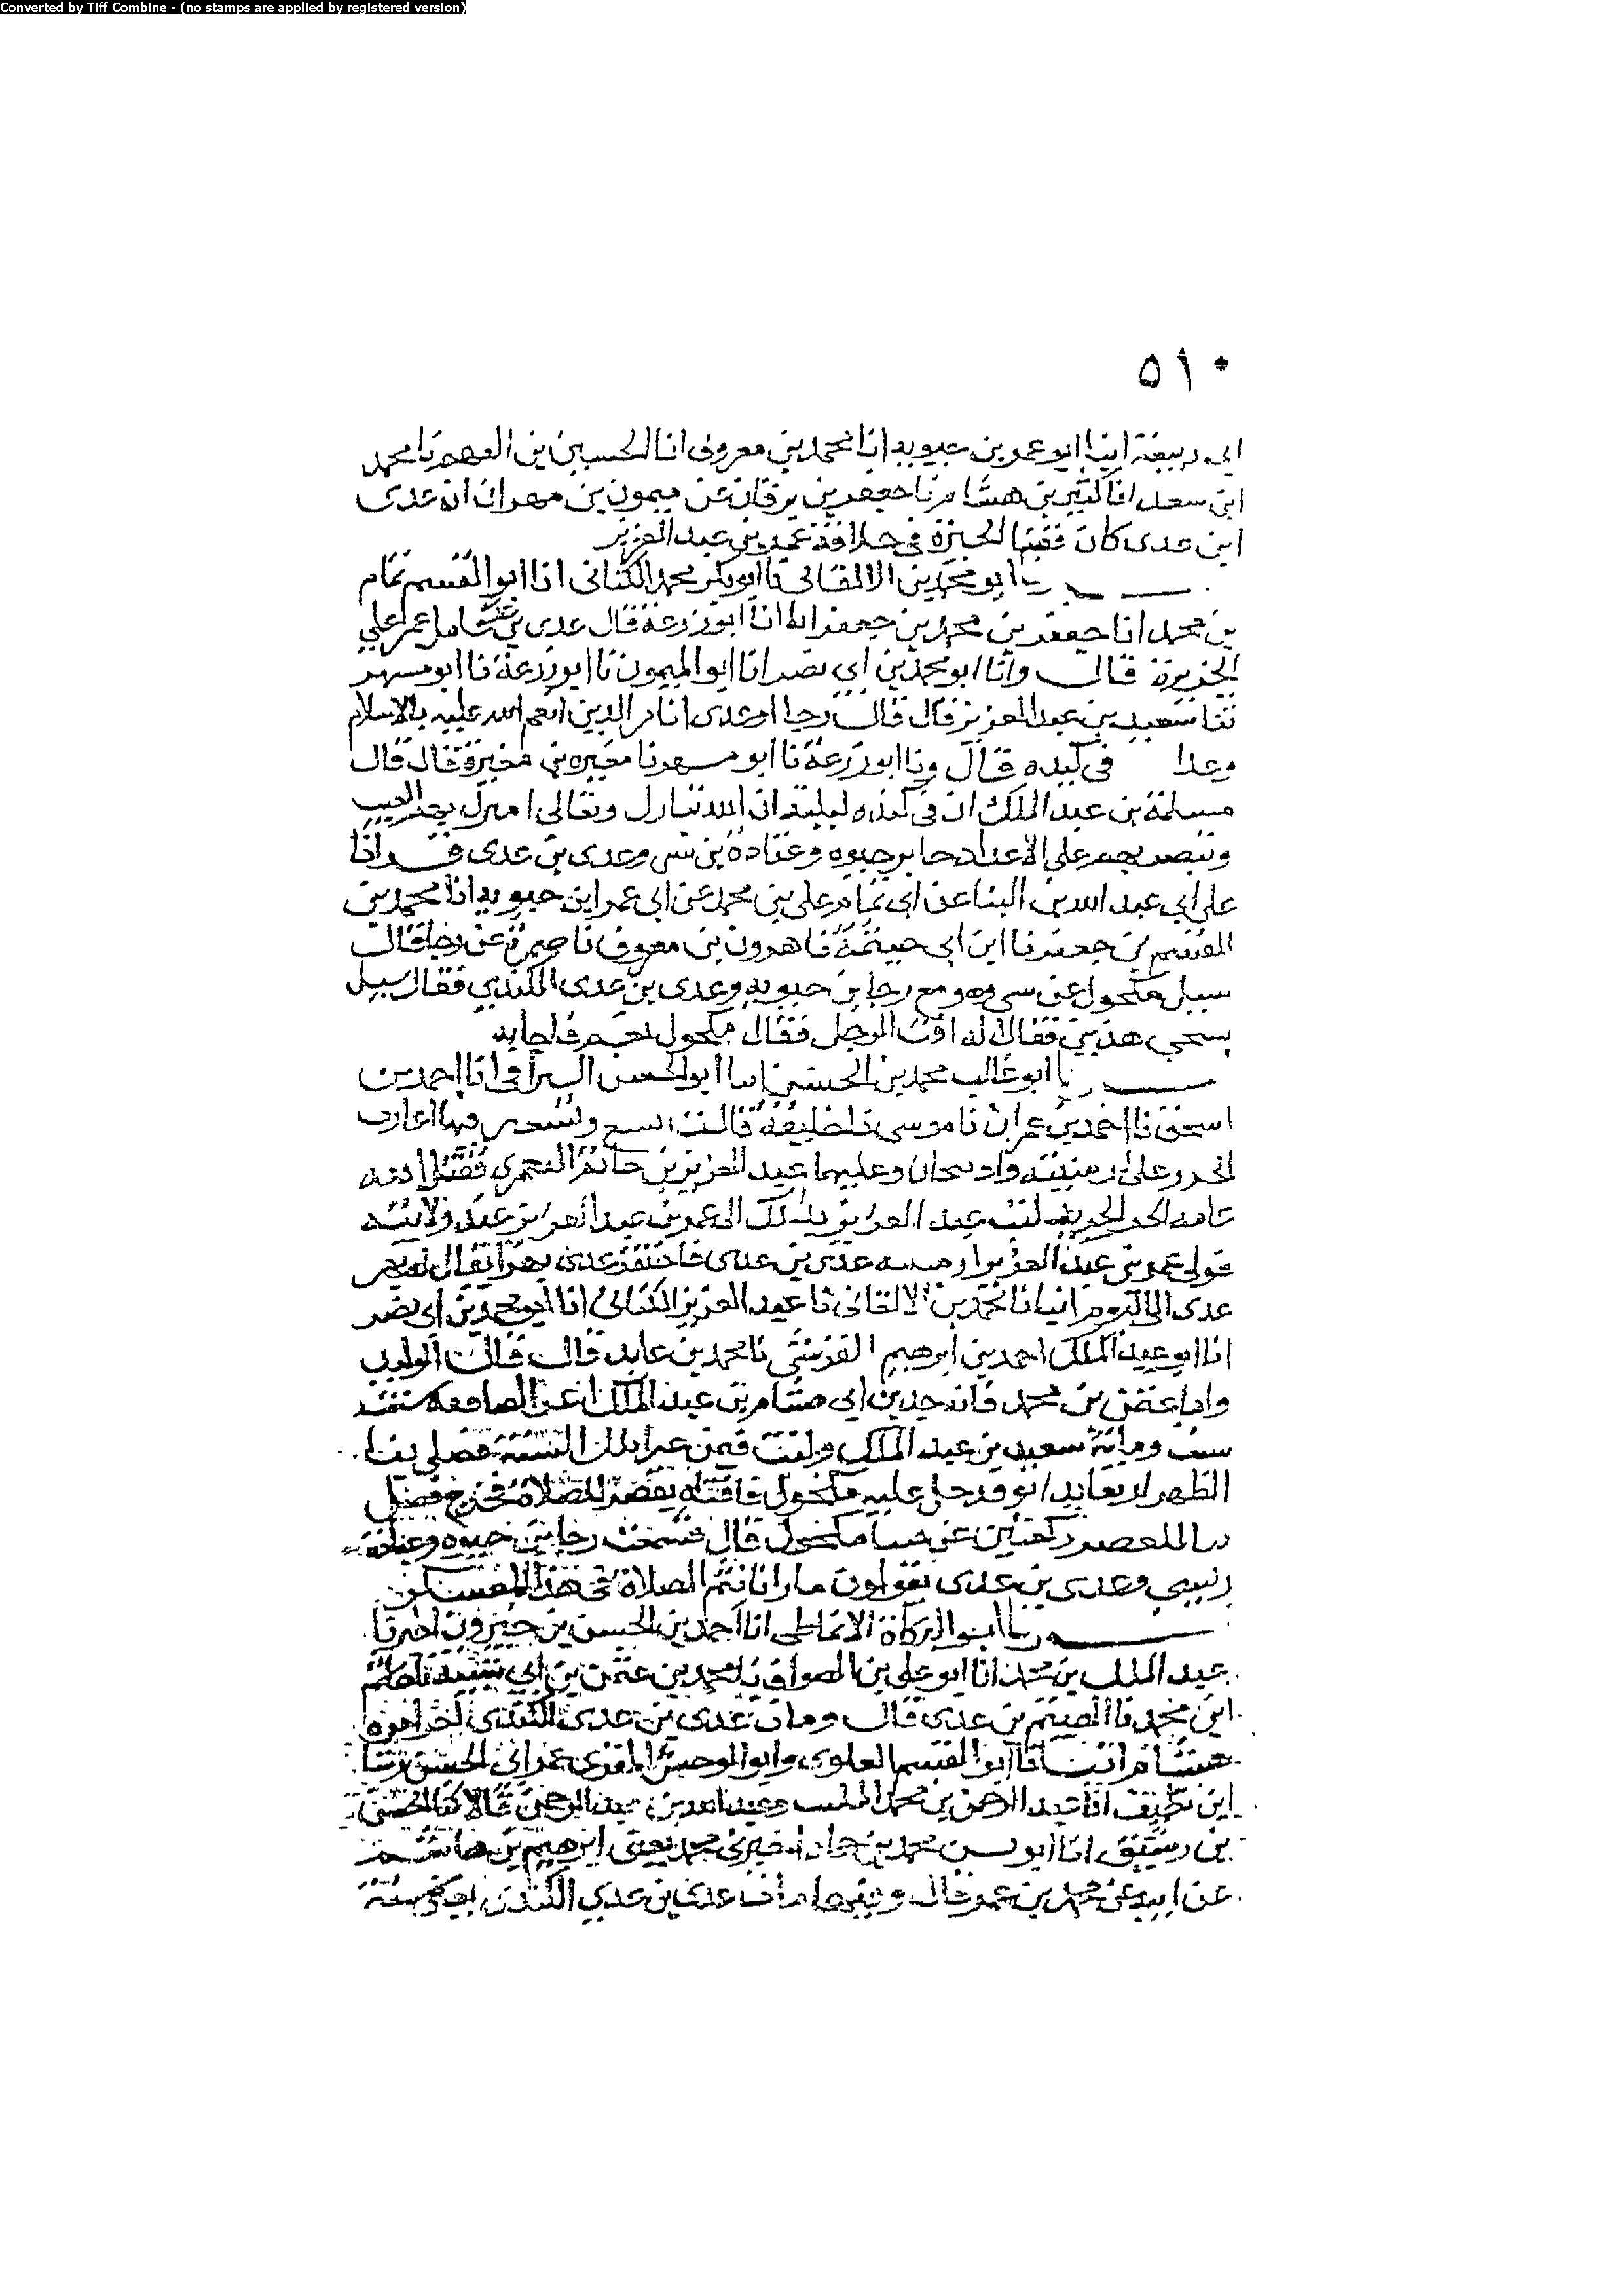 Converted by Tiff Combine - (no stamps are applied by registered version)
٥١٠
ابي ربيعة ابو عمر بن حيويه انا محمد بن معروف انا الحسين بن الفهم نا محمد
ابن سعد انا كثير بن هشام نا جعفر بن برقان عن ميمون بن مهران ان عدى
ابن عدى كان في خلافة عمر بن عبد العزيز
ابو محمد بن الاكفاني نا ابو بكر محمد الكتانى انا ابو القسم تمام
بن محمد انا جعفر بن محمد بن جعفر انا ابو زرعة قال عدى بن عدى عامل عمر على
الجزيرة قال وانا ابو محمد بن ابي نصر انا ابو الميمون نا ابو زرعة نا ابو مسهر
نا سعيد بن عبد العزيز قال قال رجا او عدى انا من الذين انعم الله عليه بالاسلام
وعدا في كنده قال ونا ابو زرعة نا ابو مسهر نا مغيره بن مغيرة قال قال
مسلمة بن عبد الملك ان في كنده لثلثة ان الله تبارك وتعالى بهم الغيث
وينصر بهم على الاعداء رجا بن حيوه وعباده بن نسى وعدى بن عدى قرانا
على ابي عبد الله بن البنا عن ابي تمام على بن محمد عن ابي عمر ابن حيويه انا محمد بن
القسم بن جعفر نا ابن ابي خيثمة نا هرون بن معروف نا ضمرة عن رجا قال
سيل مكحول عن شى وهو مع رجا بن حيويه وعدى بن عدى الكندي فقال سيل
هذين فقال له افت الرجل فقال مكحول نعم فاجابه
نا ابو غالب محمد بن الحسن انا ابو الحسن السيرافي انا احمد بن
اسحق نا احمد بن عمران نا موسى نا خليفة قال سنة تسع وتسعين فيها اغارت
الخزر على ارمينيه واذربيجان وعليها عبد العزيز بن حاتم
عامه الخزر عبد العزيز بذلك الى عمر بن عبد العزيز عند ولايته
فولى عمر بن عبد العزيز ارمينيه عدى بن عدى فاحتفر عدى نهرا يقال له نهر
عدى الى اليوم انبانا محمد بن الاكفاني نا عبد العزيز الكتاني انا ابو محمد بن ابي نصر
انا ابو عبد الملك احمد بن ابرهيم القرشي نا محمد بن عايذ قال قال الوليد
بن محمد بن هشام بن عبد الملك اغزا الصايفه سنة
ست وماية سعيد بن عبد الملك وكنت فيمن غزا تلك السنة فصلى بنا
الظهر اربعا فدخل عليه مكحول فافتاه بقصر الصلاة فخرج فصلى
بنا العصر ركعتين مكحول قال سمعت رجا بن حيوه وعبادة
بن نسي وعدى بن عدى يقولون ما رانا نتم الصلاة في هذا العسكر
نا ابو البركات الانماطى انا احمد بن الحسن بن خيرون اخبرنا
عبد الملك بن محمد انا ابو على بن الصواف نا محمد بن عثمن بن ابي شيبة نا هاشم
ابن محمد نا الهيثم بن عدى قال ومات عدى بن عدى الكندى اخر امره
هشام انبانا ابو القسم العلوى وابو الوحش المقرى عن ابي الحسن رشا
ابن نظيف انا عبد الرحمن بن محمد وعبد الله بن عبد الرحمن قالا نا الحسن
بن رشيق انا ابو بشر محمد بن حماد اخبرنى محمد يعنى ابن ابرهيم بن هاشم
عن ابيه عن محمد بن عمر قال وفيها مات عدى بن عدي الكندى سنة